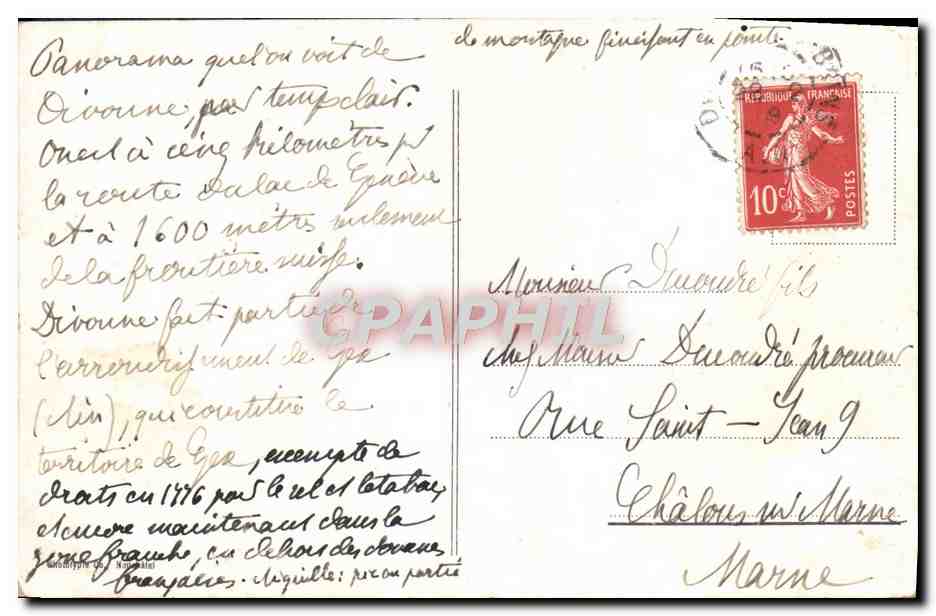 Panorama que l'on voit de
Divonne, par temps clair.
On est à cinq kilomètres pr
la route du lac de Genève
et à 1600 mètres seulement
de la frontière suisse.
Divonne fait partie de
l'arrondissement de Gex
(Ain), qui constitue le
territoire de Gex, exempte de
droits en 1776 pour le sel et le tabac
et encore maintenant dans la
zone franche, en dehors des douanes
françaises. Aiguille: pic ou partie
de montagne finissant en pointe
Phototypie Co., Neuchâtel
RÉPUBLIQUE FRANÇAISE
10c
POSTES
Monsieur Ducoudré fils
chez Monsieur Ducoudré procureur
Rue Saint-Jean 9
Châlons sur Marne
Marne
CPAPHIL